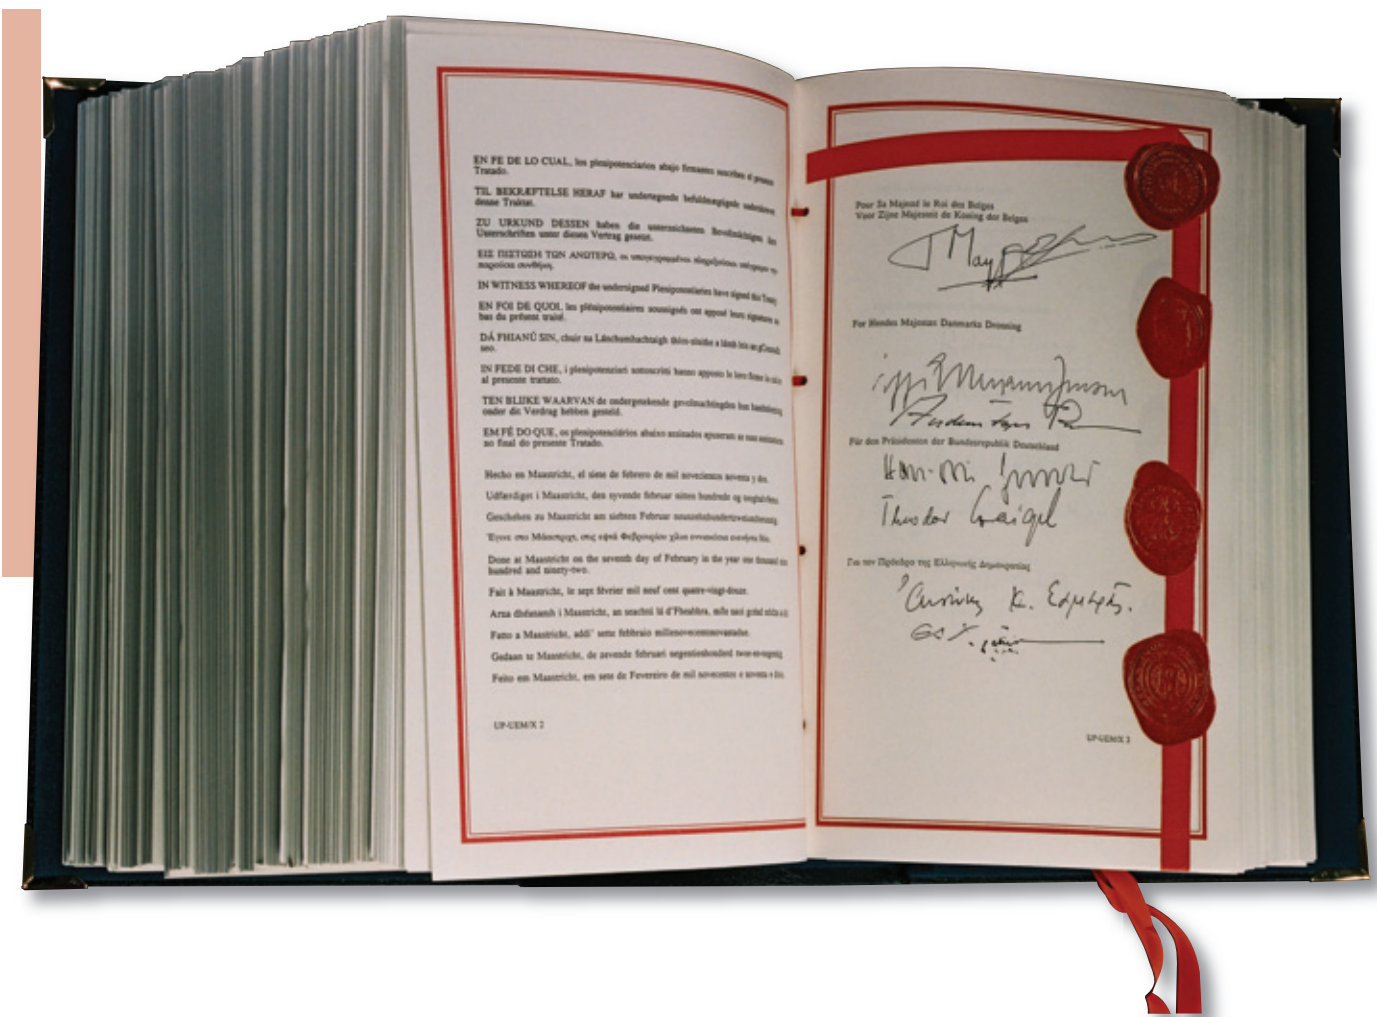 EN FE DE LO CUAL, los plenipotenciarios abajo firmantes suscriben el presente
Tratado.
TIL BEKRÆFTELSE HERAF har undertegnede befuldmægtigede
denne Traktat.
ZU URKUND DESSEN haben die unterzeichneten Bevollmächtigten ihre
Unterschriften unter diesen Vertrag gesetzt.
ΕΙΣ ΠΙΣΤΩΣΗ ΤΩΝ ΑΝΩΤΕΡΩ, οι υπογεγραμμένοι πληρεξούσιοι υπέγραψαν την
παρούσα συνθήκη.
IN WITNESS WHEREOF the undersigned Plenipotentiaries have signed this Treaty
EN FOI DE QUOI, les plénipotentiaires soussignés ont apposé leurs signatures au
bas du présent traité.
DÁ FHIANÚ SIN, chuir na Lánchumhachtaigh thíos-sínithe a lámh leis an gConradh
seo.
IN FEDE DI CHE, i plenipotenziari sottoscritti hanno apposto le loro firme in calce
al presente trattato.
TEN BLIJKE WAARVAN de ondergetekende gevolmachtigden hun handtekening
onder dit Verdrag hebben gesteld.
EM FÉ DO QUE, os plenipotenciários abaixo assinados apuseram as suas assinaturas
no final do presente Tratado.
Hecho en Maastricht, el siete de febrero de mil novecientos noventa y dos.
Udfærdiget i Maastricht, den syvende februar nitten hundrede og tooghalvfems.
Geschehen zu Maastricht am siebten Februar neunzehnhundertzweiundneunzig.
Έγινε στο Μάαστριχτ, στις εφτά Φεβρουαρίου χίλια εννιακόσια ενενήντα δύο.
Done at Maastricht on the seventh day of February in the year one thousand nine
hundred and ninety-two.
Fait à Maastricht, le sept février mil neuf cent quatre-vingt-douze.
Arna dhéanamh i Maastricht, an seachtú lá d'Fheabhra, míle naoi gcéad nócha a dó.
Fatto a Maastricht, addi' sette febbraio millenovecentonovantadue.
Gedaan te Maastricht, de zevende februari negentienhonderd twee-en-negentig.
Feito em Maastricht, em sete de Fevereiro de mil novecentos e noventa e dois.
UP-UEM/X 2
Pour Sa Majesté le Roi des Belges
Voor Zijne Majesteit de Koning der Belgen
For Hendes Majestæt Danmarks Dronning
Für den Präsidenten der Bundesrepublik Deutschland
Theodor Waigel
Για τον Πρόεδρο της Ελληνικής Δημοκρατίας
UP-UEM/X 3